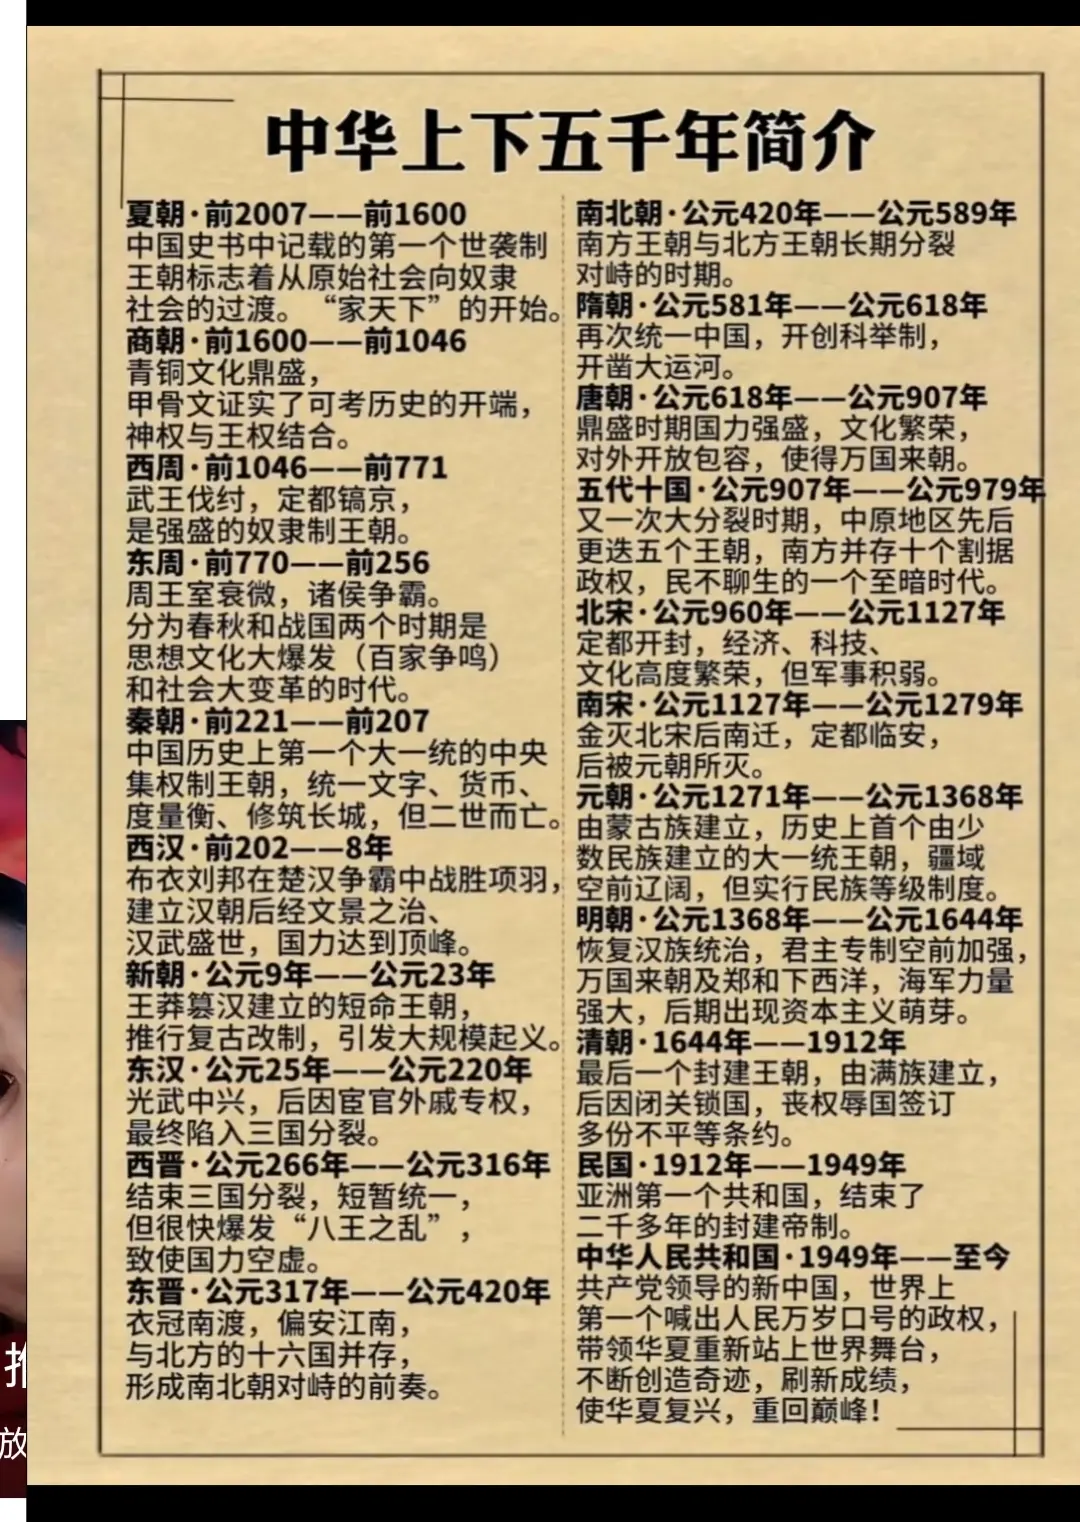 中华上下五千年简介
夏朝·前2007——前1600
中国史书中记载的第一个世袭制
王朝标志着从原始社会向奴隶
社会的过渡。“家天下”的开始。
商朝·前1600——前1046
青铜文化鼎盛，
甲骨文证实了可考历史的开端，
神权与王权结合。
西周·前1046——前771
武王伐纣，定都镐京，
是强盛的奴隶制王朝。
东周·前770——前256
周王室衰微，诸侯争霸。
分为春秋和战国两个时期是
思想文化大爆发（百家争鸣）
和社会大变革的时代。
秦朝·前221——前207
中国历史上第一个大一统的中央
集权制王朝，统一文字、货币、
度量衡、修筑长城，但二世而亡。
西汉·前202——8年
布衣刘邦在楚汉争霸中战胜项羽，
建立汉朝后经文景之治、
汉武盛世，国力达到顶峰。
新朝·公元9年——公元23年
王莽篡汉建立的短命王朝，
推行复古改制，引发大规模起义。
东汉·公元25年——公元220年
光武中兴，后因宦官外戚专权，
最终陷入三国分裂。
西晋·公元266年——公元316年
结束三国分裂，短暂统一，
但很快爆发“八王之乱”，
致使国力空虚。
东晋·公元317年——公元420年
衣冠南渡，偏安江南，
与北方的十六国并存，
形成南北朝对峙的前奏。
南北朝·公元420年——公元589年
南方王朝与北方王朝长期分裂
对峙的时期。
隋朝·公元581年——公元618年
再次统一中国，开创科举制，
开凿大运河。
唐朝·公元618年——公元907年
鼎盛时期国力强盛，文化繁荣，
对外开放包容，使得万国来朝。
五代十国·公元907年——公元979年
又一次大分裂时期，中原地区先后
更迭五个王朝，南方并存十个割据
政权，民不聊生的一个至暗时代。
北宋·公元960年——公元1127年
定都开封，经济、科技、
文化高度繁荣，但军事积弱。
南宋·公元1127年——公元1279年
金灭北宋后南迁，定都临安，
后被元朝所灭。
元朝·公元1271年——公元1368年
由蒙古族建立，历史上首个由少
数民族建立的大一统王朝，疆域
空前辽阔，但实行民族等级制度。
明朝·公元1368年——公元1644年
恢复汉族统治，君主专制空前加强，
万国来朝及郑和下西洋，海军力量
强大，后期出现资本主义萌芽。
清朝·1644年——1912年
最后一个封建王朝，由满族建立，
后因闭关锁国，丧权辱国签订
多份不平等条约。
民国·1912年——1949年
亚洲第一个共和国，结束了
二千多年的封建帝制。
中华人民共和国·1949年——至今
共产党领导的新中国，世界上
第一个喊出人民万岁口号的政权，
带领华夏重新站上世界舞台，
不断创造奇迹，刷新成绩，
使华夏复兴，重回巅峰！
放